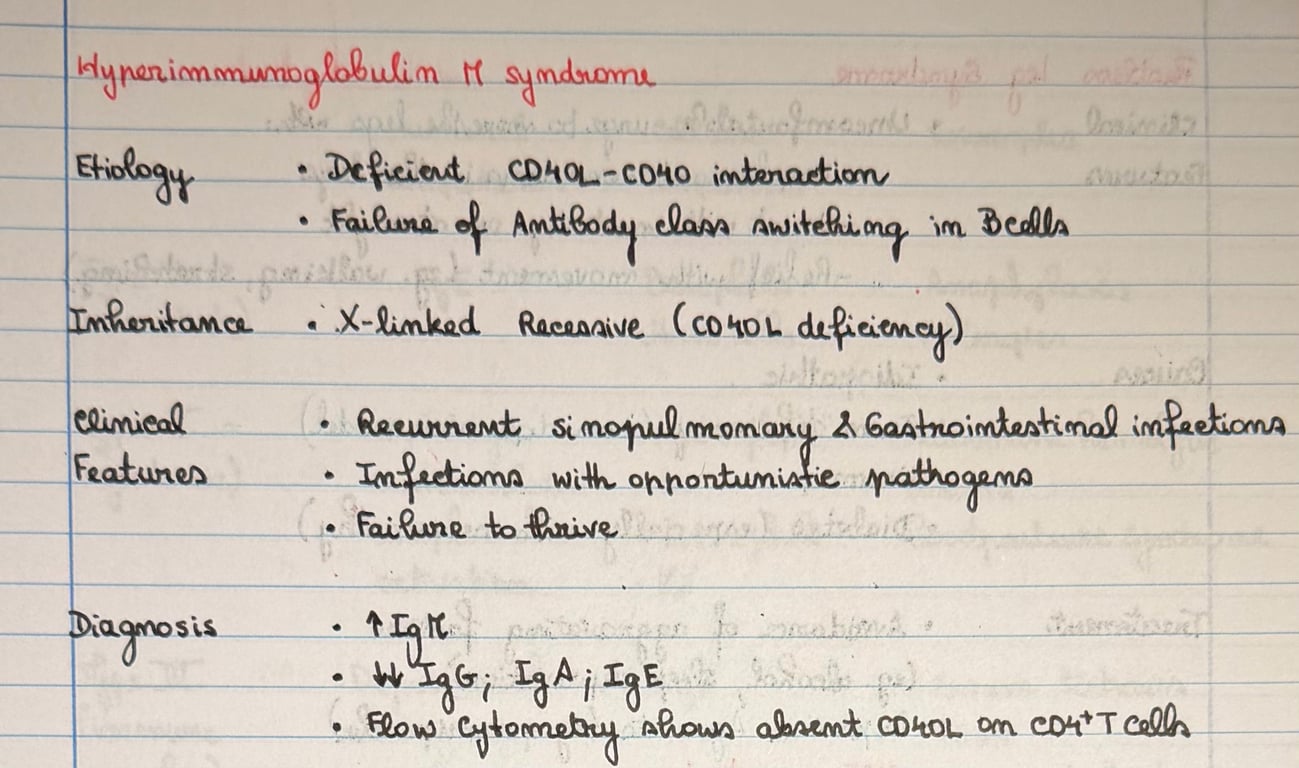 Hyperimmunoglobulin M syndrome
Etiology • Deficient CD40L-CD40 interaction
• Failure of Antibody class switching in B cells
Inheritance • X-linked Recessive (CD40L deficiency)
Clinical • Recurrent sinopulmonary & Gastrointestinal infections
Features • Infections with opportunistic pathogens
• Failure to thrive
Diagnosis • ↑ IgM
• ↓↓ IgG; IgA; IgE
• Flow cytometry shows absent CD40L on CD4⁺ T cells